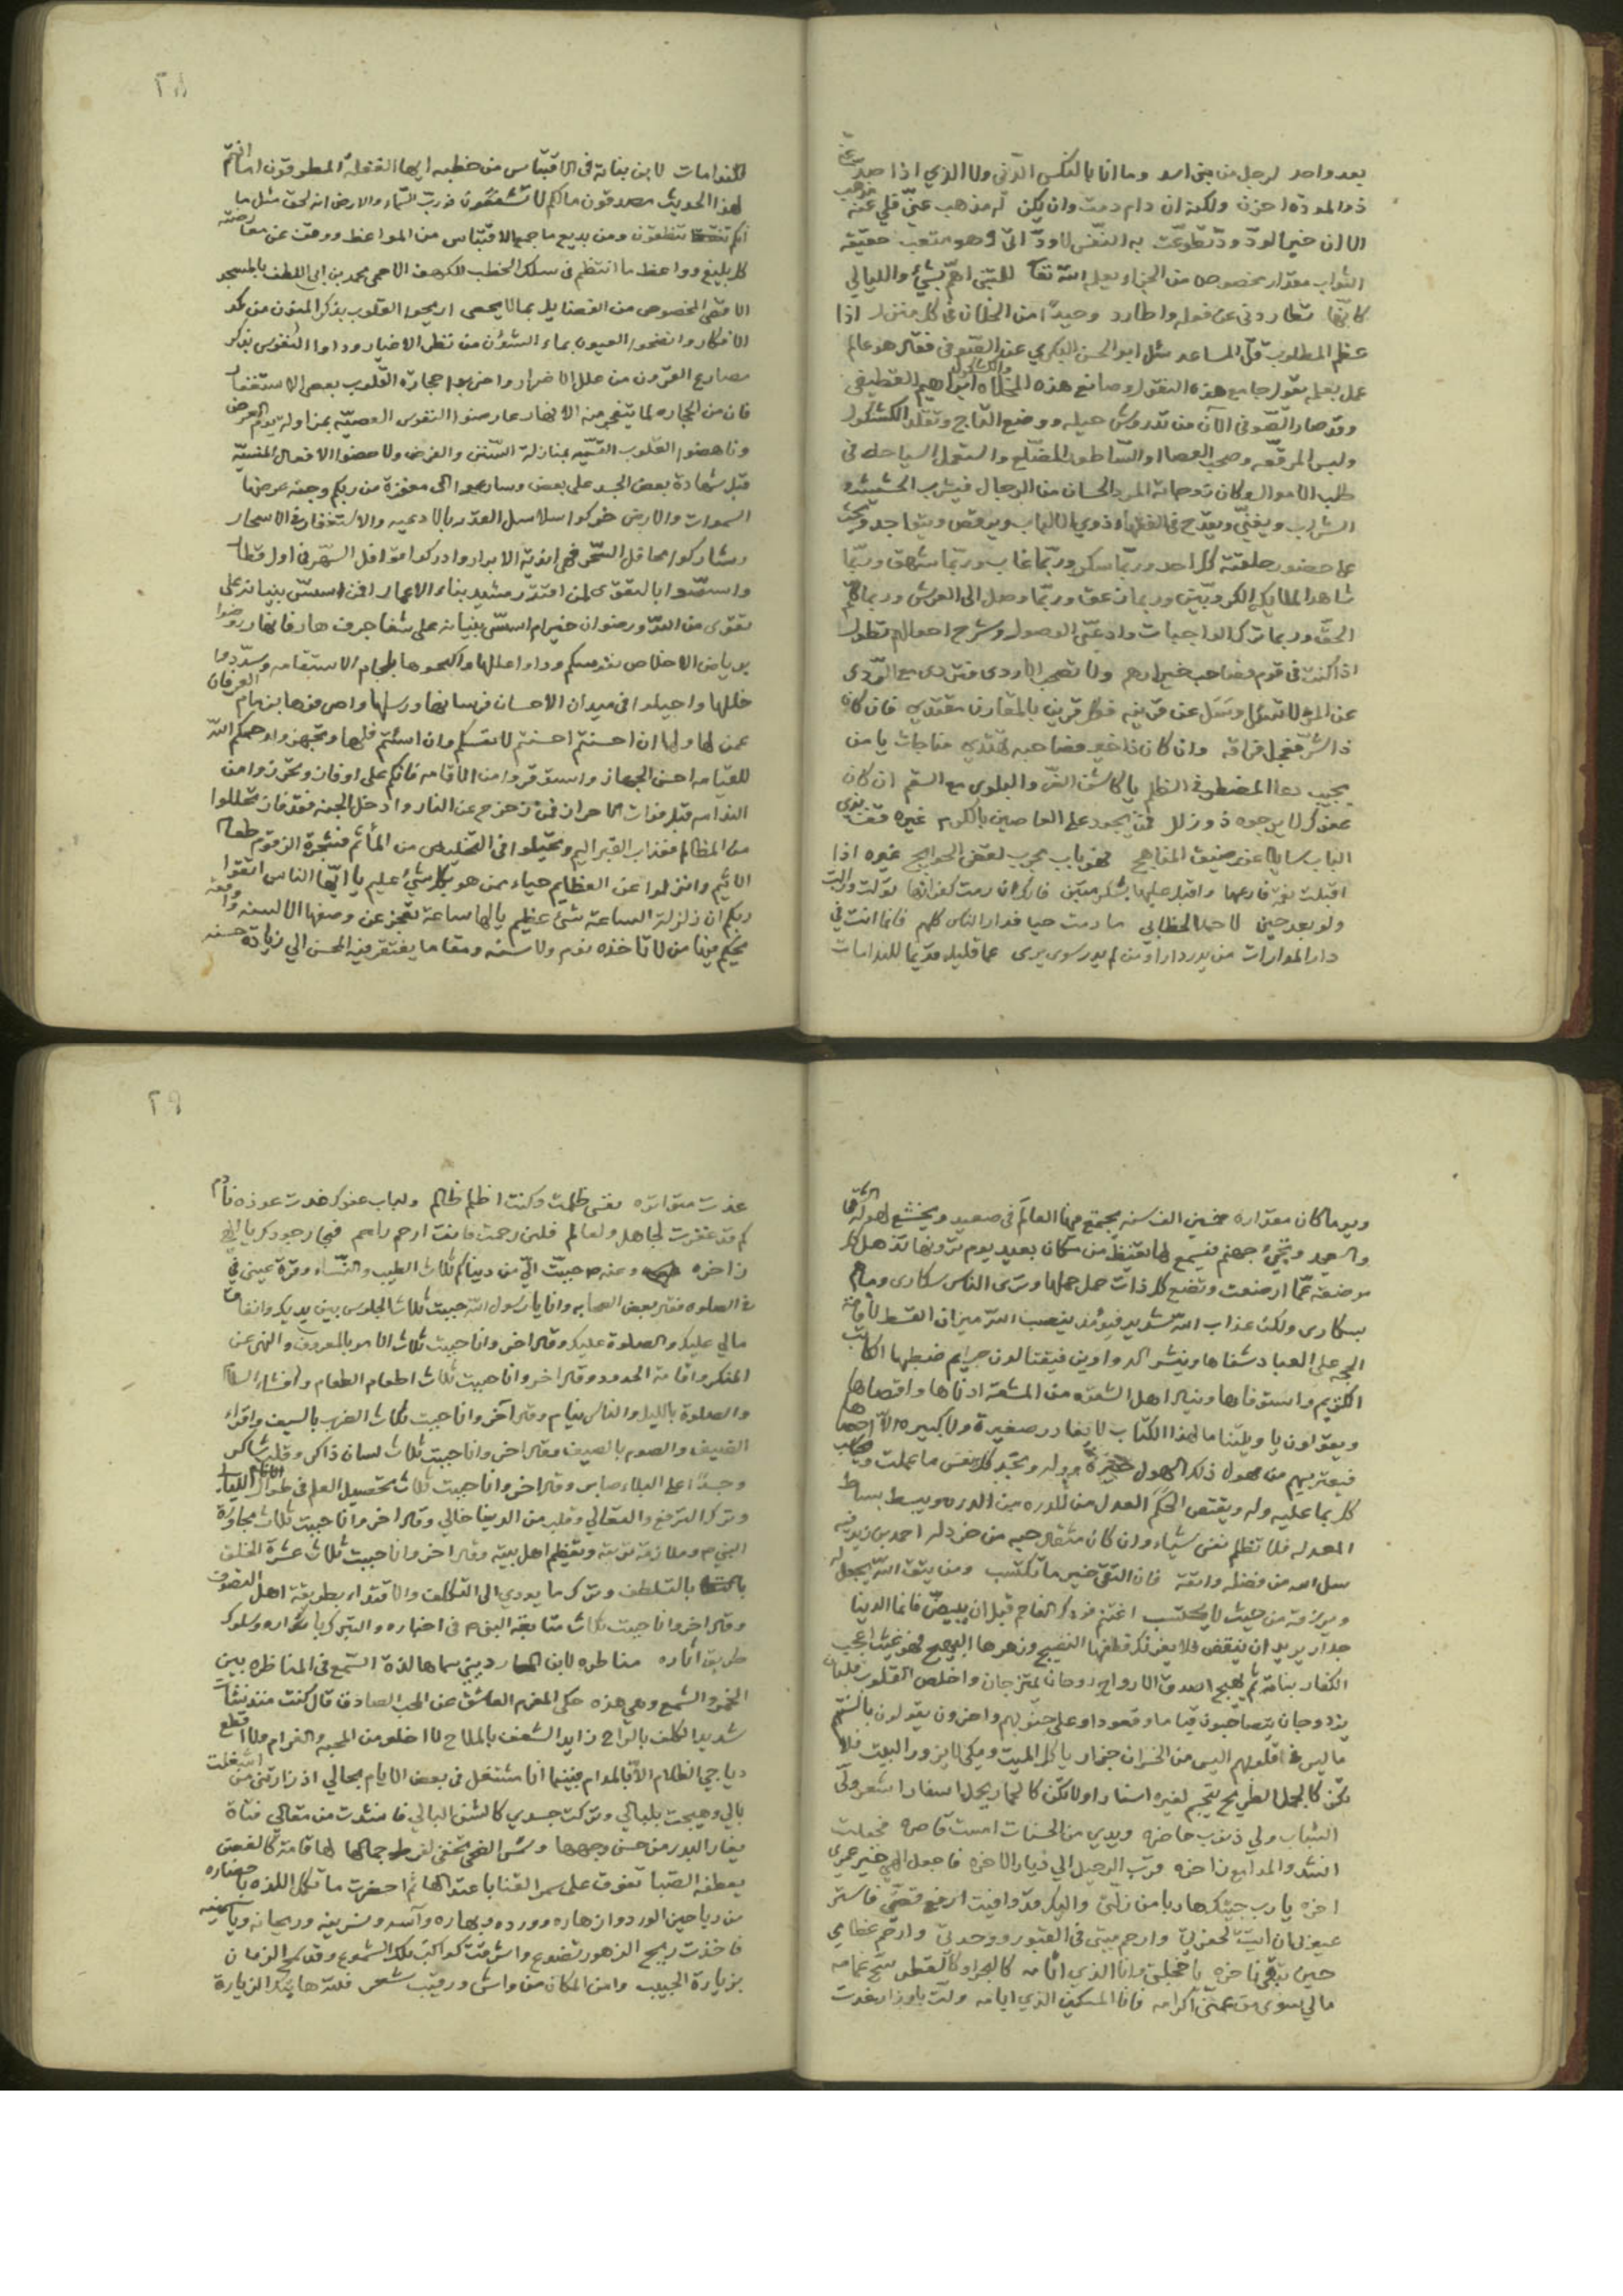 بعد واحد لرجل من بني اسد وما انا بالنكس الدني ولا الذي اذا صد عني
ذو المودة احزن ولكنه ان دام دمت وان يكن له مذهب عني فلي عنه مذهب
الا ان خير الود ود تطوعت به النفس لا ود اتى وهو متعب حقيقة
الثواب مقدار مخصوص من الجزاء يعلم الله تعا للمتنبي اهم بشئ والليالي
كانها تطاردني عن فوله واطارد وحيدا من الخلان في كل منزل اذا
عظم المطلوب قل المساعد سئل ابو الحسن البكري عن الصوفي فقال هو عالم
عمل بعلمه يقول جامع هذه النقول وصانع هذه المخلاه والكشكول ابراهيم القطيفي
وقد صار الصوفي الآن من تدروش حيله ووضع التاج وتقلد الكشكول
ولبس المرقعه وصحب العصا والساطور المضلع واستعمل السياحه في
طلب الاموال وكان زوجاته المرد الحسان من الرجال فيشرب الحشيشه
الشراب ويغني ويقدح في الفقهاء ذوي الالباب ويرقص ويتواجد
على حضور حلقته كل احد وربما سكر وربما غاب وربما شهق وربما
شاهد الملايكه الكروبين وربما زعق وربما وصل الى العرش وربما
الحق وربما ترك الواجبات وادعى الوصول وشرح احوالهم تطول
اذا كنت في قوم فصاحب خيارهم ولا تصحب الاردى فتردى مع الردى
عن المرء لا تسئل وسل عن قرينه فكل قرين بالمقارن مقتدي فان كان
ذا شر فعجل فراقه وان كان ذا خير فصاحبه تهتدي مناجات يا من
يجيب دعا المضطر في الظلم يا كاشف الضر والبلوى مع السقم ان كان
عفوك لا يرجوه ذو زلل فمن يجود على العاصين بالكرم غيره قف
الباب سايلا عند ضيق المناهج فهو باب مجرب لقضى الحوايج غيره اذا
اقبلت نعمة فارعها واقبل عليها بشكر مبين فانك ان رمت كفرانها تولت وزالت
ولو بعد حين لاحمد الخطابي ما دمت حيا فدار الناس كلهم فانما انت في
دار المدارات من يدر دارا ومن لم يدر سوف يرى عما قليل نديما للندامات
٢٨
للندامات لابن نباتة في الاقتباس من خطبه ايها الغفلة المطرقون اما انتم
بهذا الحديث مصدقون مالكم لا تشفقون فورب السماء والارض انه لحق مثل ما
انكم تنطقون ومن بديع ما جمع الاقتباس من المواعظ ووقف عن معارضته
كل بليغ وواعظ ما انتظم في سلك الخطب للكهف الاحمى محمد بن ابي اللطف بالمسجد
الاقصى المخصوص من الفضايل بما لا يحصى اريحوا القلوب بذكر المنون من كد
الافكار وانضحوا العيون بماء الشؤن من تنظر الاخيار وداووا النفوس بذكر
مصارع القرون من علل الاضرار واضربوا حجارة القلوب بعصى الاستغفار
فان من الحجاره لما يتفجر منه الانهار عارضوا النفوس العصيه بمزاولة يوم العرض
وناهضوا القلوب القسيه بمنازلة السنن والفرض ولاحضوا الافعال المنسيه
قبل شهادة بعض الجسد على بعض وسارعوا الى مغفرة من ربكم وجنه عرضها
السموات والارض حركوا سلاسل القدر بالادعيه والاستغفار في الاسحار
وشاركوا محافل السحر فهي اندية الابرار وادركوا قوافل السهر في اول قطار
واستضوا بالتقوى لمن اقتدر مشيد بناء الاعمار افمن اسس بنيانه على
تقوى من الله ورضوان خير ام اسس بنيانه على شفا جرف هار فانهار روضوا
برياض الاخلاص نفوسكم وداووا عللها واكبحوها بلجام الاستقامه وسددوا
خللها واجيلوا في ميدان الاحسان فرسانها ورسلها واصرفوها بزمام العرفان
عمن لها ولها ان احسنتم احسنتم لانفسكم وان اساتم فلها وتجهزوا رحمكم الله
للقيامه احسن الجهاز واستوقروا من الاقامه فانكم على اوفاز وتحرزوا من
الندامه قبل فوات الاحراز فمن زحزح عن النار وادخل الجنه فقد فاز تحللوا
من المظالم فعذاب القبر اليم وتحيلوا في التخلص من المأثم فشجرة الزقوم طعام
الاثيم وانزلوا عن العظايم حياء ممن هو بكل شئ عليم يا ايها الناس اتقوا
ربكم ان زلزلة الساعة شئ عظيم يا لها ساعة تعجز عن وصفها الالسنه واقعة
يحكم فيها من لا تاخذه نوم ولا سنه ومقاما يفتقر فيه المحسن الى زيادة حسنه
ويوما كان مقداره خمسين الف سنه يجتمع فيها العالم في صعيد ويخشع لهوله
والسعيد وتجئ جهنم فيسمع لها تغيظ من مكان بعيد يوم ترونها تذهل كل
مرضعة عما ارضعت وتضع كل ذات حمل حملها وترى الناس سكارى وما هم
بسكارى ولكن عذاب الله شديد فيومئذ ينصب الله ميزان القسط لاقامة
الحجه على العباد شفاها وينشر الدواوين فيقتالون جرايم ضبطها الكاتب
الكريم واستوفاها وينال اهل الشقوه من المشقة ادناها واقصاها
ويقولون يا ويلتنا مال هذا الكتاب لا يغادر صغيرة ولا كبيره الا احصاها
فيعتريهم من هول ذلك الهول حيرة ووله وتجد كل نفس ما عملت ويحاسب
كل بما عليه وله ويقتص الحكم العدل من الذره بين الذره ويبسط بساط
المعدله فلا تظلم نفس شياء وان كان مثقال حبه من خردله احمد بن يزيد فيه
سل الله من فضله واتقه فان التقى خير ما تكتسب ومن يتق الله يجعل له
ويرزقه من حيث لا يحتسب اغتنم فودك الفاحم قبل ان يبيض فانما الدنيا
جدار يريد ان ينقض فلا يغرنك قطفها النضيج وزهرها البهيج فهو كغيث اعجب
الكفار نباته ثم يهيج اصدق الارواح روحان يمتزجان واخلص القلوب قلبان
يزدوجان يتصاحبون قياما وقعودا وعلى جنوبهم واخرون يقولون بالسنتهم
ما ليس في قلوبهم اليس من الخسران حمار ياكل الميت ويبكي لا يزور البيت فلا
تكن كالجمل الطريح يتجر لغيره استارا ولا تكن كالحمار يحمل اسفارا شعر ولى
الشباب ولي ذنوب حاضره ويدي من الحسنات امست قاصره فجعلت
انشد والمدامع زاخره قرب الرحيل الى ديار الاخره فاجعل الهي خير عمري
اخره يارب جيتك هاربا من زلتي واليك قد وافيت ارفع قصتي فاستر
عيوبي ان اتيت لحفرتي وارحم مبيتي في القبور ووحدتي وارحم عظامي
حين تبقى ناخره يا خجلتي وانا الذي اثامه كالبحر او كالقطر سح غمامه
مالي سوى من عمني اكرامه فانا المسكين الذي ايامه ولت باوزار غدت
٢٩
غدت متواتره نفسي ظلمت وكنت اظلم ظالم ولباب عفوك غدت عوذة نادم
كم قد غفرت لجاهل ولعالم فلئن رحمت فانت ارحم راحم فبحار جودك يا الهي
زاخره وعنه ص حبب الي من دنياكم ثلاث الطيب والنساء وقرة عيني في
في الصلوه فقال بعض الصحابه وانا يا رسول الله حببت ثلاث الجلوس بين يديك وانفاق
مالي عليك والصلوة عليك وقال اخر وانا حببت ثلاث الامر بالمعروف والنهي عن
المنكر واقامة الحدود وقال اخر وانا حببت ثلاث اطعام الطعام وافشاء السلام
والصلوة بالليل والناس نيام وقال آخر وانا حببت ثلاث الضرب بالسيف واقراء
الضيف والصوم بالصيف وقال اخر وانا حببت ثلاث لسان ذاكر وقلب شاكر
وجسدا على البلاء صابر وقال اخر وانا حببت ثلاث تحصيل العلم في طوال الليال
وترك الترفع والتعالي وقلب من الدنيا خالي وقال اخر وانا حببت ثلاث مجاورة
النبي ص وملازمة تربته وتعظيم اهل بيته وقال اخر وانا حببت ثلاث عشرة الخلق
بالتلطف وترك ما يودي الى التكلف والاقتداء بطريقة اهل التصوف
وقال اخر وانا حببت ثلاث متابعة النبي ص في اخباره والتبرك بانواره وسلوك
طريق اثاره مناظره لابن المارديني سماها لذة السمع في المناظره بين
الخمر والشمع وهي هذه حكى المغرم العاشق عن المحب الصادق قال كنت منذ نشات
شديد الكلف بالراح زايد الشغف بالملاح لا اخلو من المحبه والغرام ولا اقطع
دياجي الظلام الا بالمدام فبينما انا مشتغل في بعض الايام بحالي اذ زارتني من اشغلت
بالي وهيجت بلبالي وتركت جسدي كالشن البالي فانشدت من مقالي فتاة
يغار البدر من حسن وجهها وشمس الضحى تخفى لفرط جمالها لها قامة كالغصن
يعطفه الصبا تفوق على سمر القنا باعتدالها ثم احضرت ما تكمل اللذه باحضاره
من رياحين الورد وازهاره وورده وبهاره وآسه ونسرينه وريحانه وياسمينه
فاخذت ريح الزهور تضوع واشرقت كواكب تلك الشموع وقد سمح الزمان
بزيارة الحبيب وامن المكان من واش ورقيب شعر فلله ها تيك الزيارة